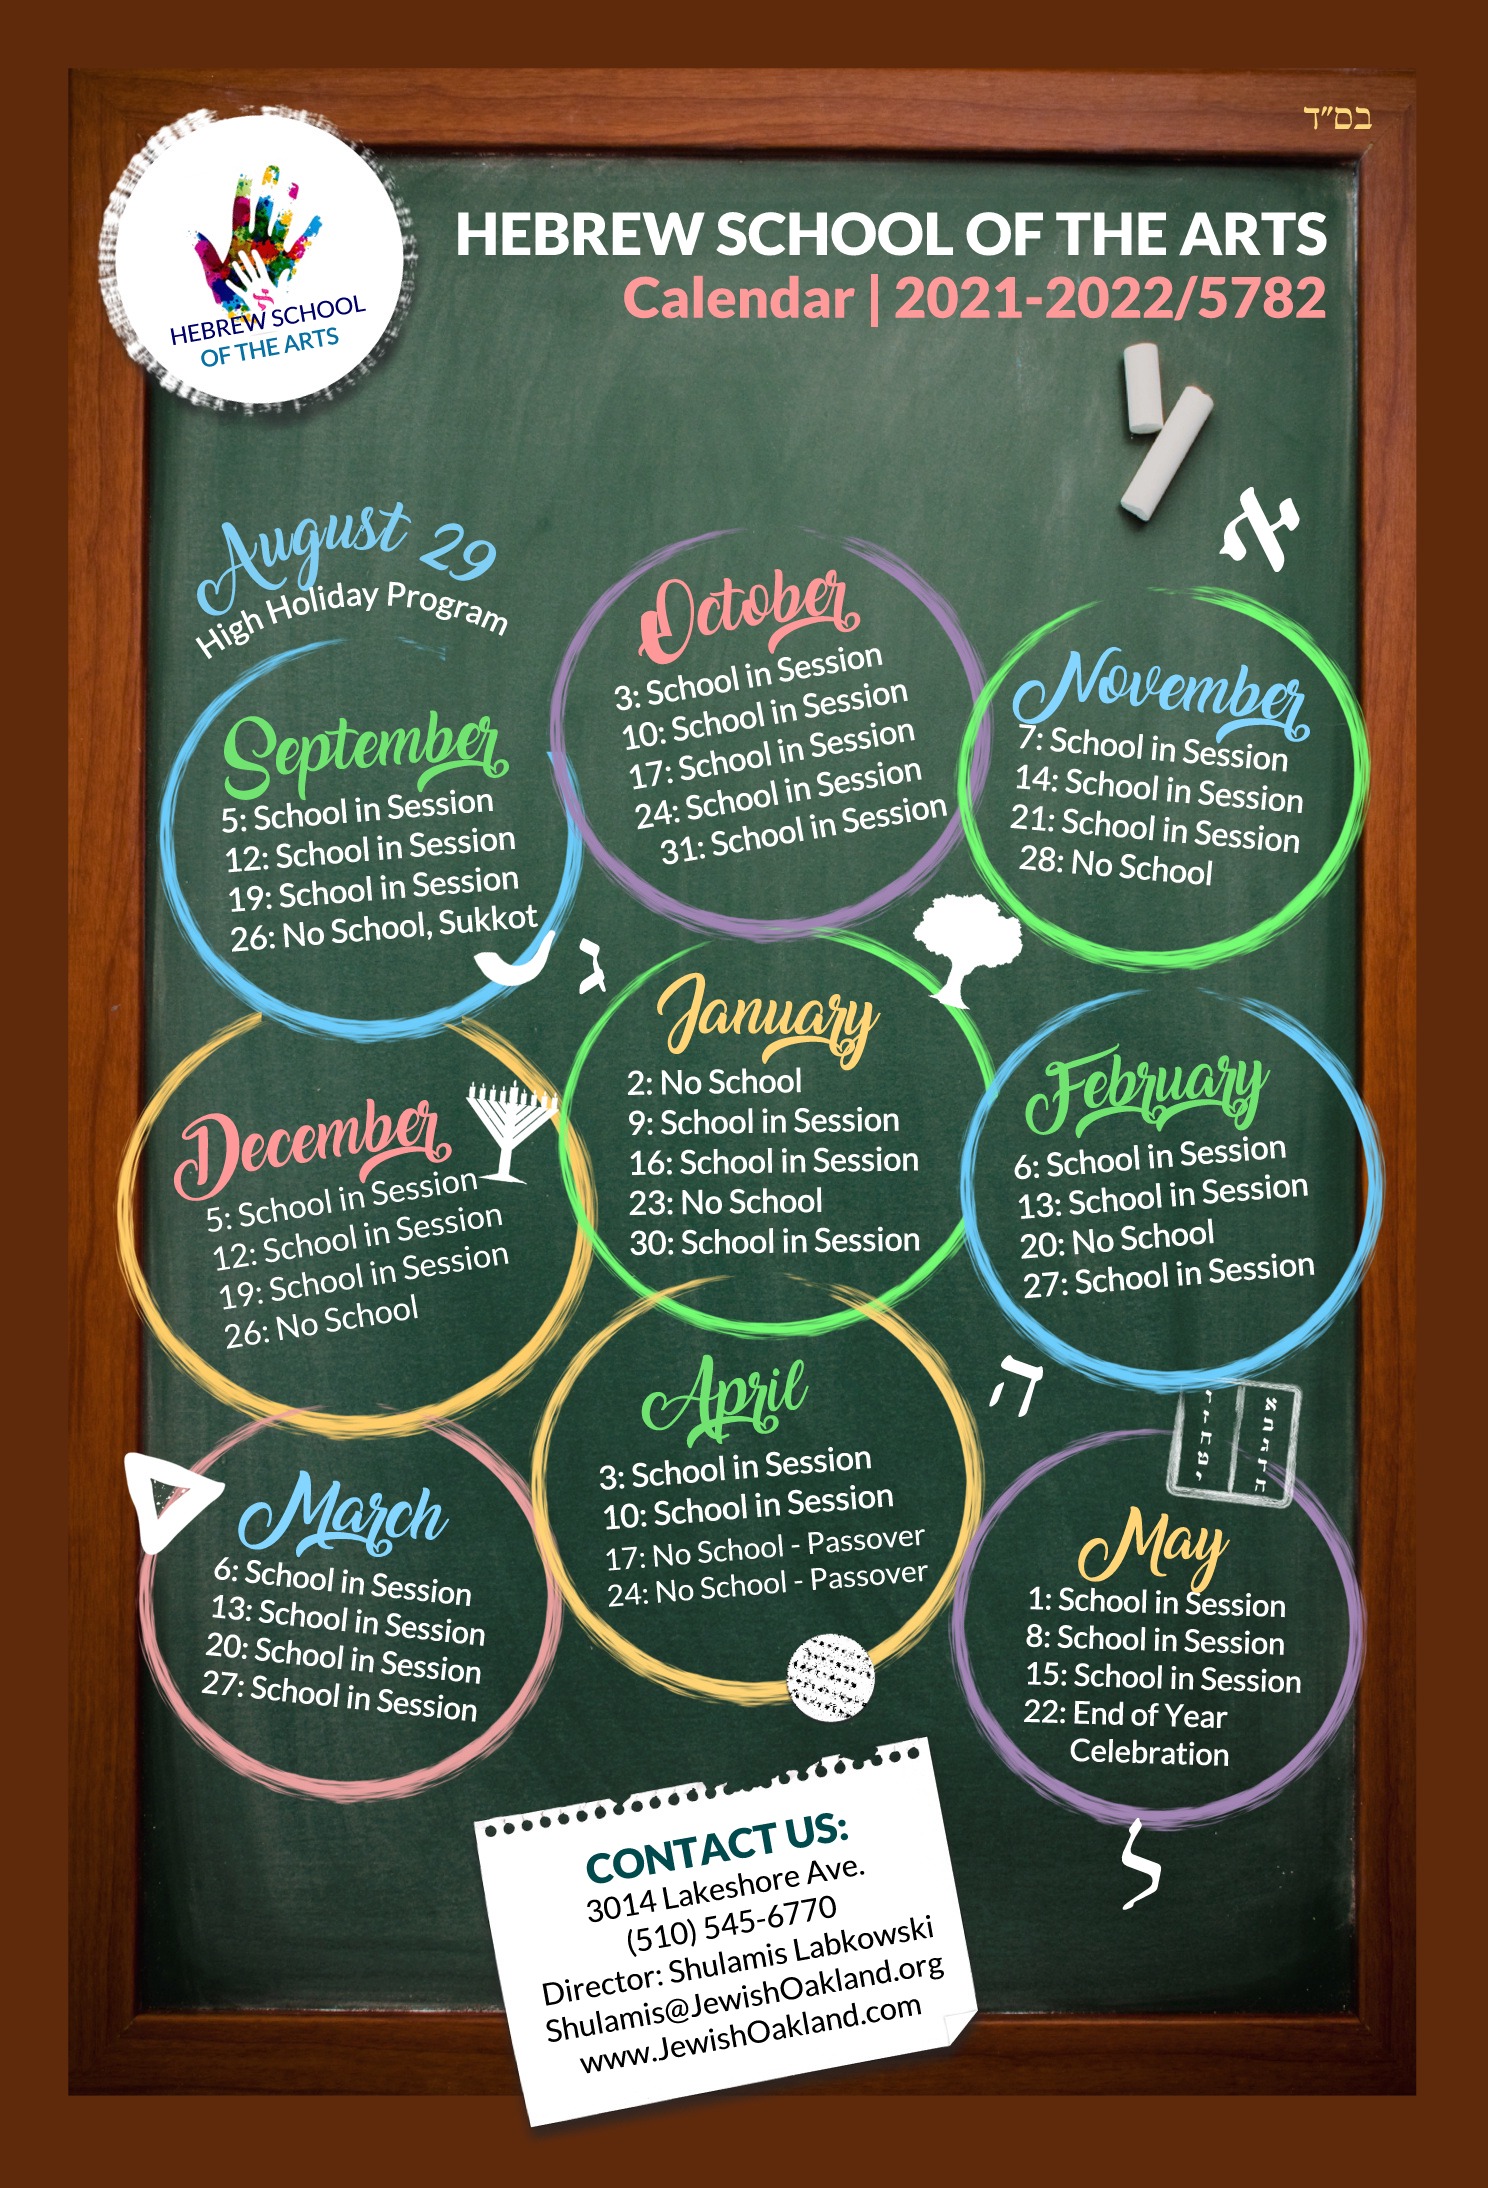 בס"ד
HEBREW SCHOOL
OF THE ARTS
HEBREW SCHOOL OF THE ARTS
Calendar | 2021-2022/5782
א
August 29
High Holiday Program
September
5: School in Session
12: School in Session
19: School in Session
26: No School, Sukkot
October
3: School in Session
10: School in Session
17: School in Session
24: School in Session
31: School in Session
November
7: School in Session
14: School in Session
21: School in Session
28: No School
ג
December
5: School in Session
12: School in Session
19: School in Session
26: No School
January
2: No School
9: School in Session
16: School in Session
23: No School
30: School in Session
February
6: School in Session
13: School in Session
20: No School
27: School in Session
ה
March
6: School in Session
13: School in Session
20: School in Session
27: School in Session
April
3: School in Session
10: School in Session
17: No School - Passover
24: No School - Passover
May
1: School in Session
8: School in Session
15: School in Session
22: End of Year
Celebration
ל
CONTACT US:
3014 Lakeshore Ave.
(510) 545-6770
Director: Shulamis Labkowski
Shulamis@JewishOakland.org
www.JewishOakland.com